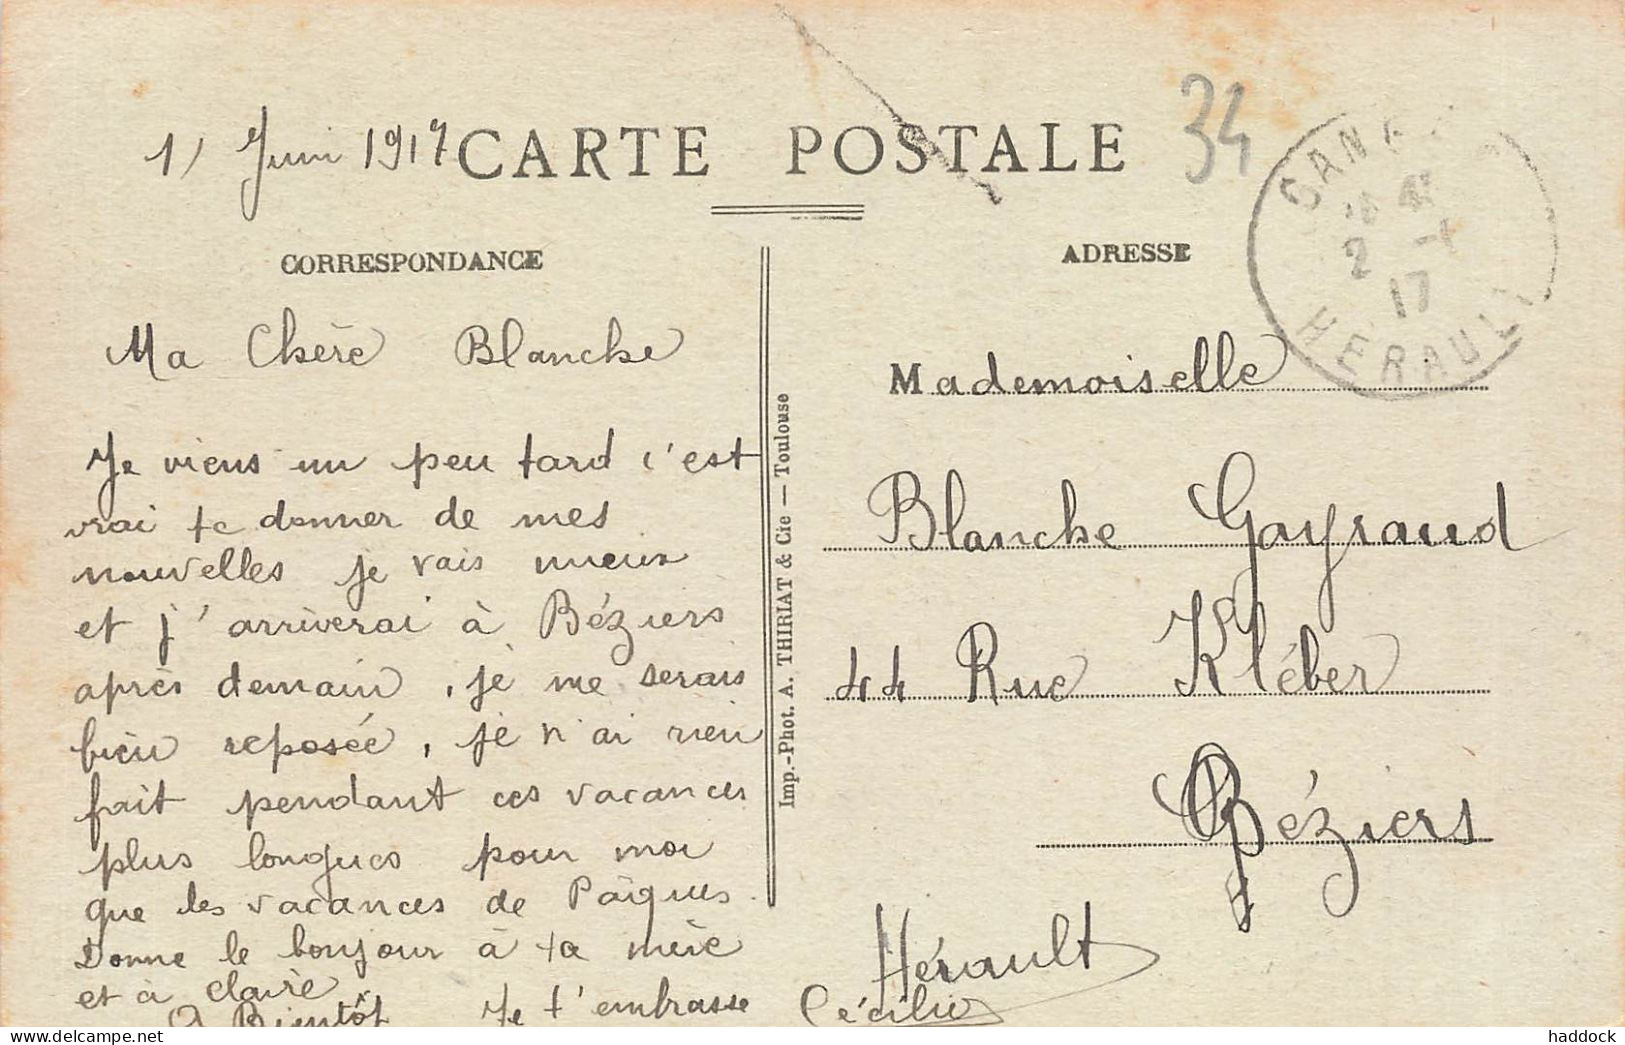 34
1, Juin 1917 CARTE POSTALE
CORRESPONDANCE
Ma Chère Blanche
Je viens un peu tard c'est
vrai te donner de mes
nouvelles je vais mieux
et j'arriverai à Béziers
après demain, je me serais
bien reposée, je n'ai rien
fait pendant ces vacances
plus longues pour moi
que les vacances de Pâques.
Donne le bonjour à ta mère
et à claire
A Bientôt Je t'embrasse Cécile
Imp.-Phot. A. THIRIAT & Cie — Toulouse
ADRESSE
2
17
HERAULT
Mademoiselle
Blanche Gayraud
44 Rue Kléber
Béziers
Hérault
https://www.delcampe.net
haddock